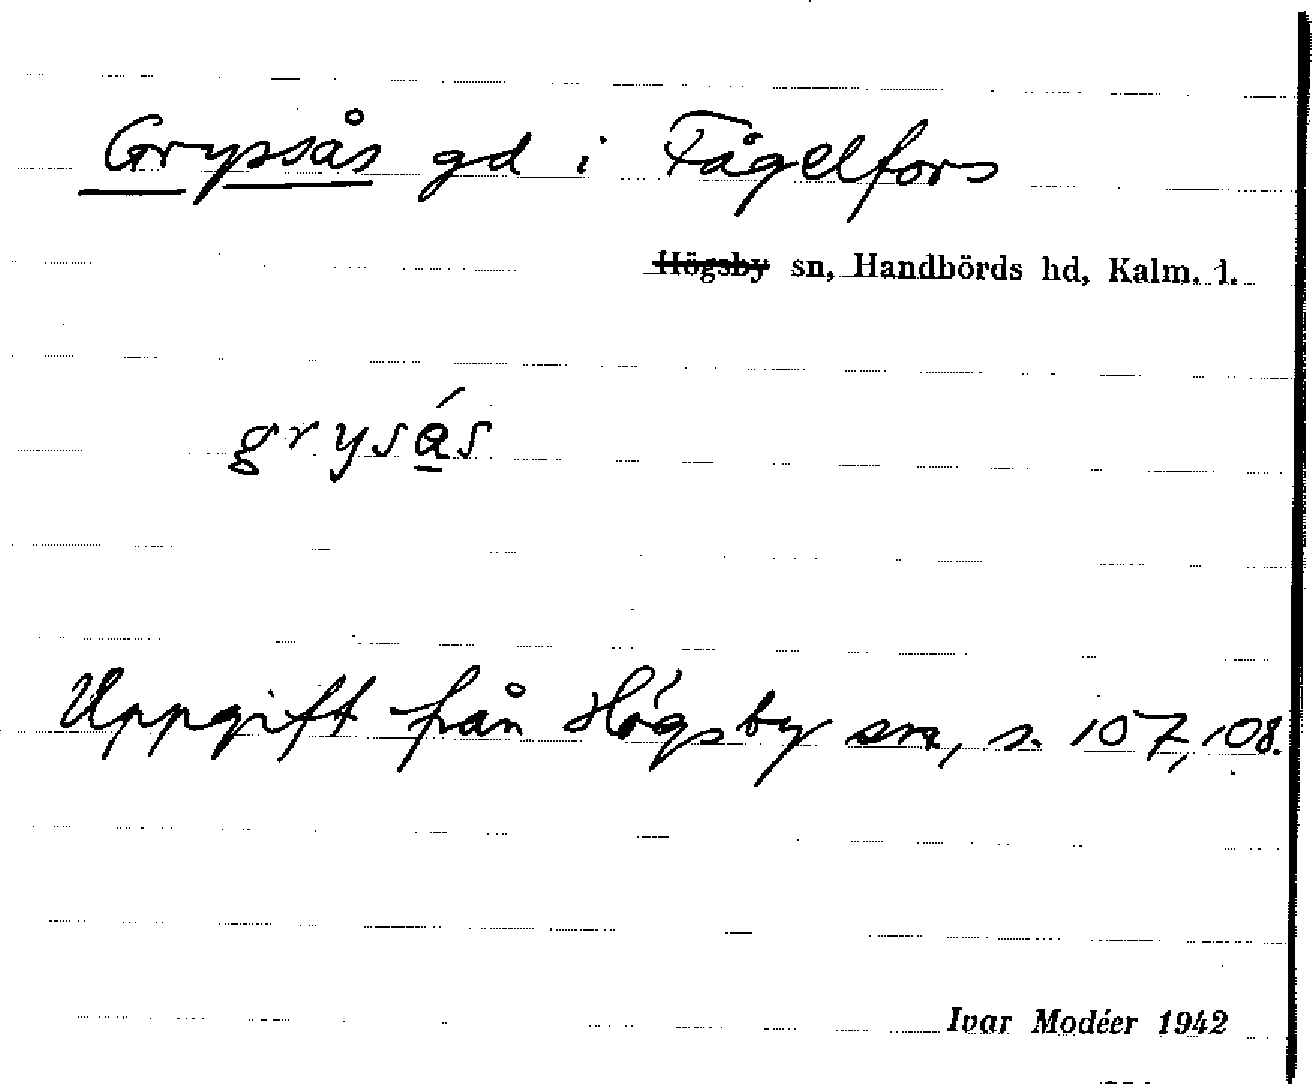 Grypsås gd i Fågelfors
Högsby sn, Handbörds hd, Kalm. l.
grysá̱s
Uppgift från Högsby sn, s. 107, 108.
Ivar Modéer 1942